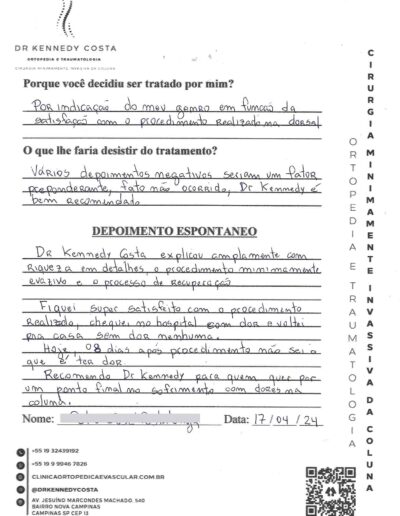 DR KENNEDY COSTA
ORTOPEDIA E TRAUMATOLOGIA
CIRURGIA MINIMAMENTE INVASIVA DA COLUNA
Porque você decidiu ser tratado por mim?
Por indicação do meu genro em função da
satisfação com o procedimento Realizado na dorsal
O que lhe faria desistir do tratamento?
Vários depoimentos negativos seriam um fator
preponderante, fato não ocorrido, Dr Kennedy é
bem Recomendado
DEPOIMENTO ESPONTANEO
Dr Kennedy Costa explicou amplamente com
Riqueza em detalhes, o procedimento minimamente
evazivo e o processo de recuperação
Fiquei super satisfeito com o procedimento
Realizado, cheguei no hospital com dor e voltei
pra casa sem dor nenhuma.
Hoje 08 dias após procedimento não sei o
que é ter dor
Recomendo Dr Kennedy para quem quer por
um ponto final no sofrimento com dores na
coluna.
Nome: Data: 17/04/24
+55 19 32439192
+55 19 9 9946 7826
CLINICAORTOPEDICAEVASCULAR.COM.BR
@DRKENNEDYCOSTA
AV. JESUÍNO MARCONDES MACHADO, 540
BAIRRO NOVA CAMPINAS
CAMPINAS SP CEP 13
ORTOPEDIA E TRAUMATOLOGIA
CIRURGIA MINIMAMENTE INVASSIVA DA COLUNA